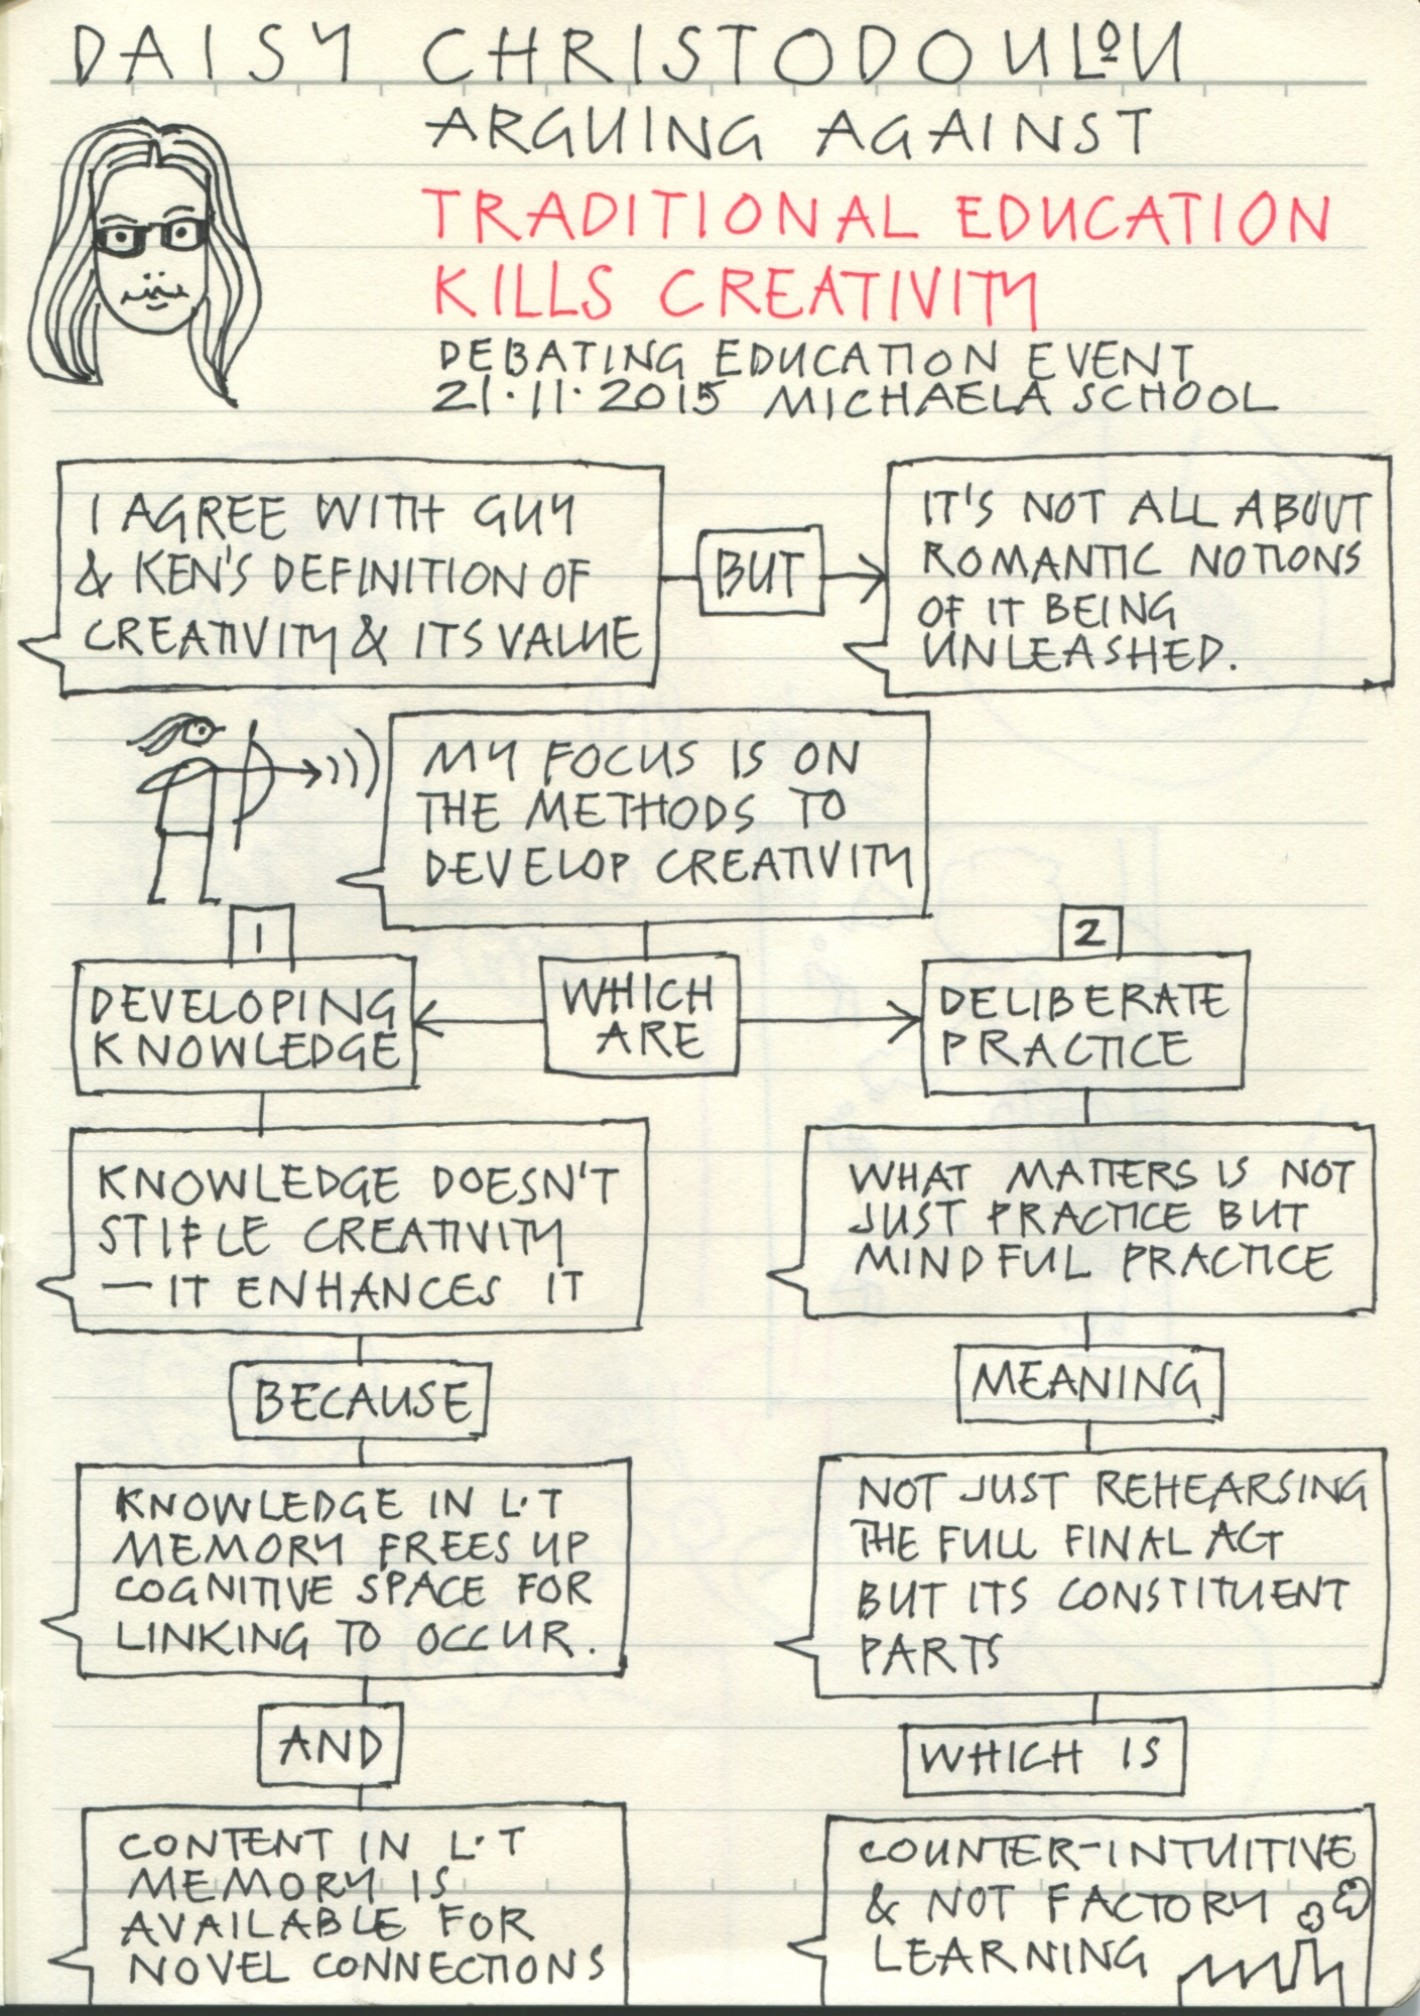 DAISY CHRISTODOULOU
ARGUING AGAINST
TRADITIONAL EDUCATION
KILLS CREATIVITY
DEBATING EDUCATION EVENT
21·11·2015 MICHAELA SCHOOL
I AGREE WITH GUY
& KEN'S DEFINITION OF
CREATIVITY & ITS VALUE
BUT
IT'S NOT ALL ABOUT
ROMANTIC NOTIONS
OF IT BEING
UNLEASHED.
MY FOCUS IS ON
THE METHODS TO
DEVELOP CREATIVITY
WHICH
ARE
1
DEVELOPING
KNOWLEDGE
KNOWLEDGE DOESN'T
STIFLE CREATIVITY
— IT ENHANCES IT
BECAUSE
KNOWLEDGE IN L·T
MEMORY FREES UP
COGNITIVE SPACE FOR
LINKING TO OCCUR.
AND
CONTENT IN L·T
MEMORY IS
AVAILABLE FOR
NOVEL CONNECTIONS
2
DELIBERATE
PRACTICE
WHAT MATTERS IS NOT
JUST PRACTICE BUT
MINDFUL PRACTICE
MEANING
NOT JUST REHEARSING
THE FULL FINAL ACT
BUT ITS CONSTITUENT
PARTS
WHICH IS
COUNTER-INTUITIVE
& NOT FACTORY
LEARNING